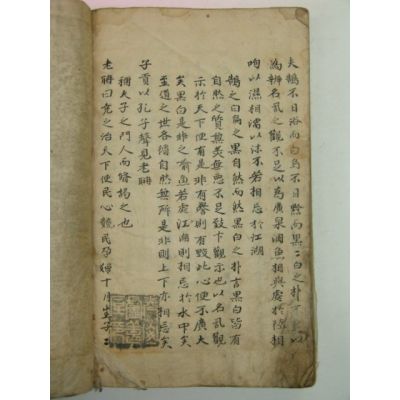 夫鵠不日浴而白烏不日黔而黑〻白之朴不以
為辨名乱之觀不足以為廣泉涸魚相與處於陸相
呴以濕相濡以沫不若相忘於江湖
鵠之白烏之黑自然而然黑白之朴言黑白皆有
自然之質無美無惡不足致卞觀示也以名乱觀
示於天下便有是非有譽則有毀此心便不廣大
矣黑白是非之喻魚若處江湖則相忘於水中矣
至道之世各循自然無所是非則上下亦相忘矣
子貢以孔子聲見老聃
稱夫子之門人而修謁之也
老聃曰堯之治天下使民心競民孕婦十月生子〻